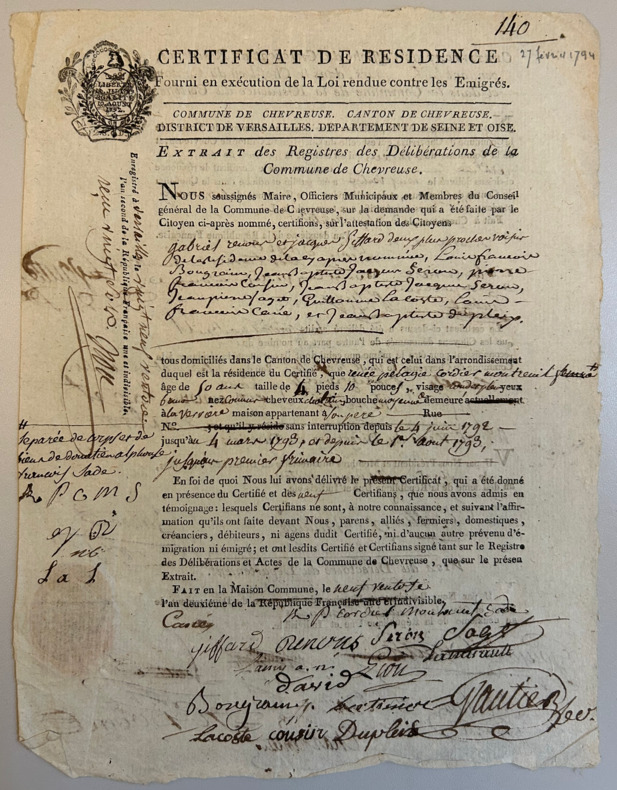 140
27 février 1794
CERTIFICAT DE RESIDENCE
Fourni en exécution de la Loi rendue contre les Emigrés.
COMMUNE DE CHEVREUSE. CANTON DE CHEVREUSE.
DISTRICT DE VERSAILLES. DEPARTEMENT DE SEINE ET OISE.
EXTRAIT des Registres des Délibérations de la
Commune de Chevreuse.
NOUS soussignés Maire, Officiers Municipaux et Membres du Conseil
général de la Commune de Chevreuse, sur la demande qui a été faite par le
Citoyen ci-après nommé, certifions, sur l'attestation des Citoyens
gabriel renou et jacques Giffard deux plus proches voisins
de la Residence de la cy apres nommée, Louis francois
Bougrain, Jean Baptiste Jacques Seron, pierre
francois Cousin, Jean Baptiste Jacques Seron,
Jean pierre Sagot, Guillaume la Coste, Louis
francois Canée, et Jean Baptiste dupleix,
tous domiciliés dans le Canton de Chevreuse, qui est celui dans l'arrondissement
duquel est la résidence du Certifié, que renée pelagie cordier montreuil femme
âge de 50 ans taille de 4 pieds 10 pouces, visage yeux
nez cheveux bouche moyenne demeure actuellement
à la verrière maison appartenant à son pere Rue
N.o et qu'il y réside sans interruption depuis le 4 juin 1792
jusqu'au 4 mars 1793, et depuis le 1er aout 1793,
jusqu'au premier frimaire
En foi de quoi Nous lui avons délivré le présent Certificat, qui a été donné
en présence du Certifié et des neuf Certifians, que nous avons admis en
témoignage: lesquels Certifians ne sont, à notre connaissance, et suivant l'affir-
mation qu'ils ont faite devant Nous, parens, alliés, fermiers, domestiques,
créanciers, débiteurs, ni agens dudit Certifié, ni d'aucun autre prévenu d'é-
migration ni émigré; et ont lesdits Certifié et Certifians signé tant sur le Registre
des Délibérations et Actes de la Commune de Chevreuse, que sur le présen
Extrait.
FAIT en la Maison Commune, le neuf ventose
l'an deuxième de la République Française une et indivisible,
R P Cordier Montreuil Sade
Canée
giffard renous Seron Sagot
david
Bougrain Gautier
Lacoste cousin Dupleix
Enregistré à Versailles le vingt neuf ventose
l'an second de la République Française une et indivisible.
reçu vingt sols
separée de corps et de
biens de donatien alphonse
francois Sade.
R P C M S